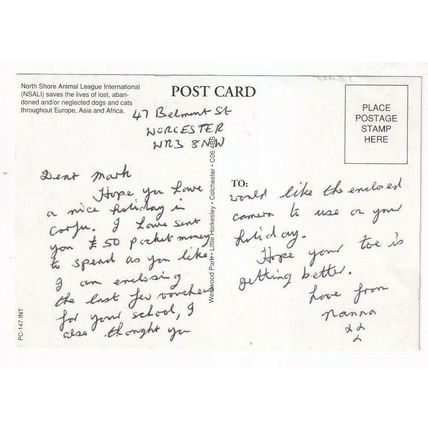 North Shore Animal League International
(NSALI) saves the lives of lost, aban-
doned and/or neglected dogs and cats
throughout Europe, Asia and Africa.
POST CARD
47 Belmont St
WORCESTER
WR3 8NW
PLACE
POSTAGE
STAMP
HERE
Dear Mark
Hope you have
a nice holiday in
Corfu. I have sent
you £50 pocket money
to spend as you like
I am enclosing
the last few vouchers
for your school, I
also thought you
Park • Little Horkesley • Colchester • CO6
TO:
would like the enclosed
camera to use on your
holiday.
Hope your toe is
getting better.
Love from
Nanna
xx
x
PC-147-INT